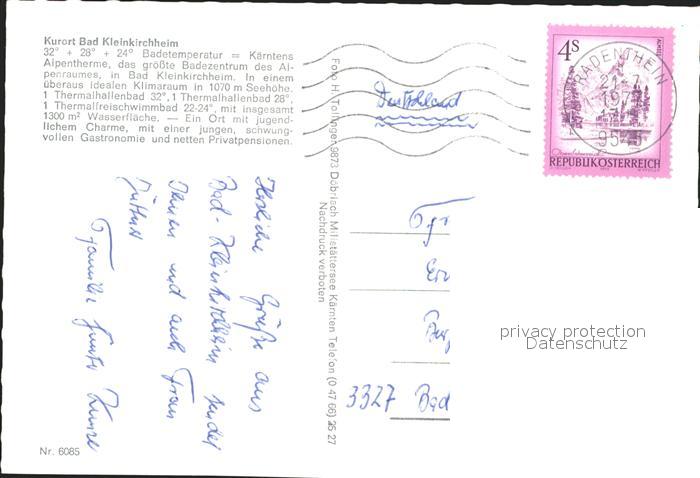 Kurort Bad Kleinkirchheim
32° + 28° + 24° Badetemperatur = Kärntens
Alpentherme, das größte Badezentrum des Al-
penraumes, in Bad Kleinkirchheim. In einem
überaus idealen Klimaraum in 1070 m Seehöhe.
1 Thermalhallenbad 32°, 1 Thermalhallenbad 28°,
1 Thermalfreischwimmbad 22-24°, mit insgesamt
1300 m² Wasserfläche. — Ein Ort mit jugend-
lichem Charme, mit einer jungen, schwung-
vollen Gastronomie und netten Privatpensionen.
Herzliche Grüße aus
Bad-Kleinkirchheim sendet
Ihnen und auch Frau
Familie Günter Kunze
Nr. 6085
Foto H. Tollinger, 9873 Döbriach Millstättersee Kärnten Telefon (0 47 66) 25 27
Nachdruck verboten
Deutschland
4S
REPUBLIK ÖSTERREICH
RADENTHEIN
3327 Bad
privacy protection
Datenschutz